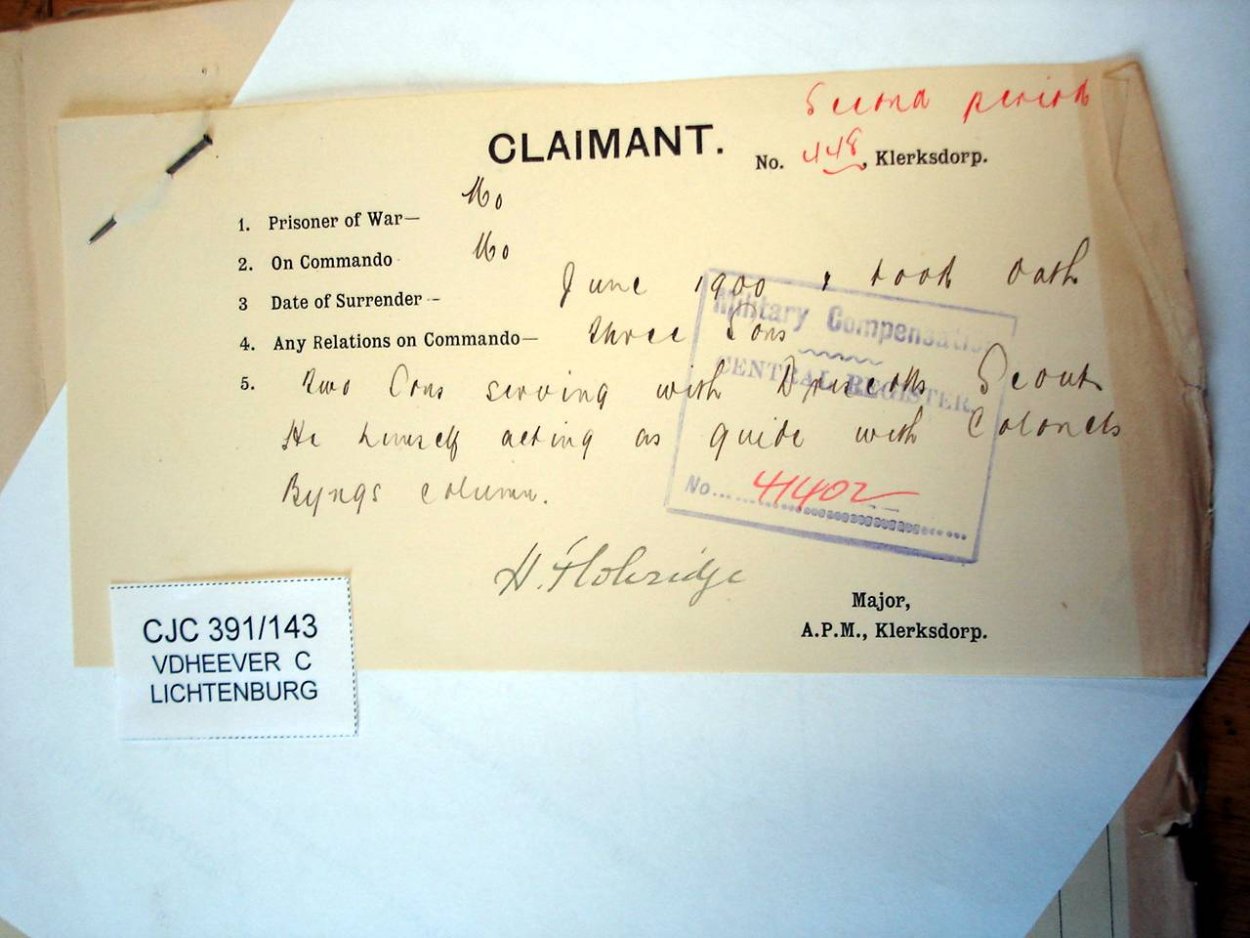 Second period
CLAIMANT.
No. 448, Klerksdorp.
1. Prisoner of War— No
2. On Commando No
3 Date of Surrender - June 1900 & took oath
4. Any Relations on Commando— three Sons
5. two Sons serving with Driscolls Scouts
He himself acting as guide with Colonels
Byngs column.
Military Compensation
CENTRAL REGISTER
No... 41402
Major,
A.P.M., Klerksdorp.
CJC 391/143
VDHEEVER C
LICHTENBURG